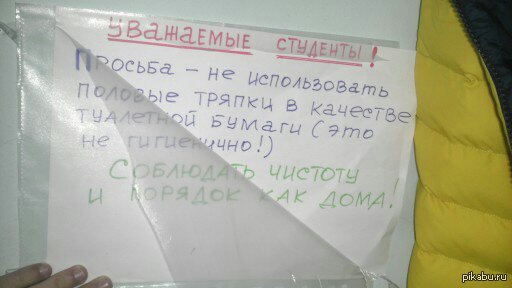 Уважаемые студенты!
Просьба – не использовать
половые тряпки в качестве
туалетной бумаги (это
не гигиенично!)
Соблюдать чистоту
и порядок как дома!
pikabu.ru